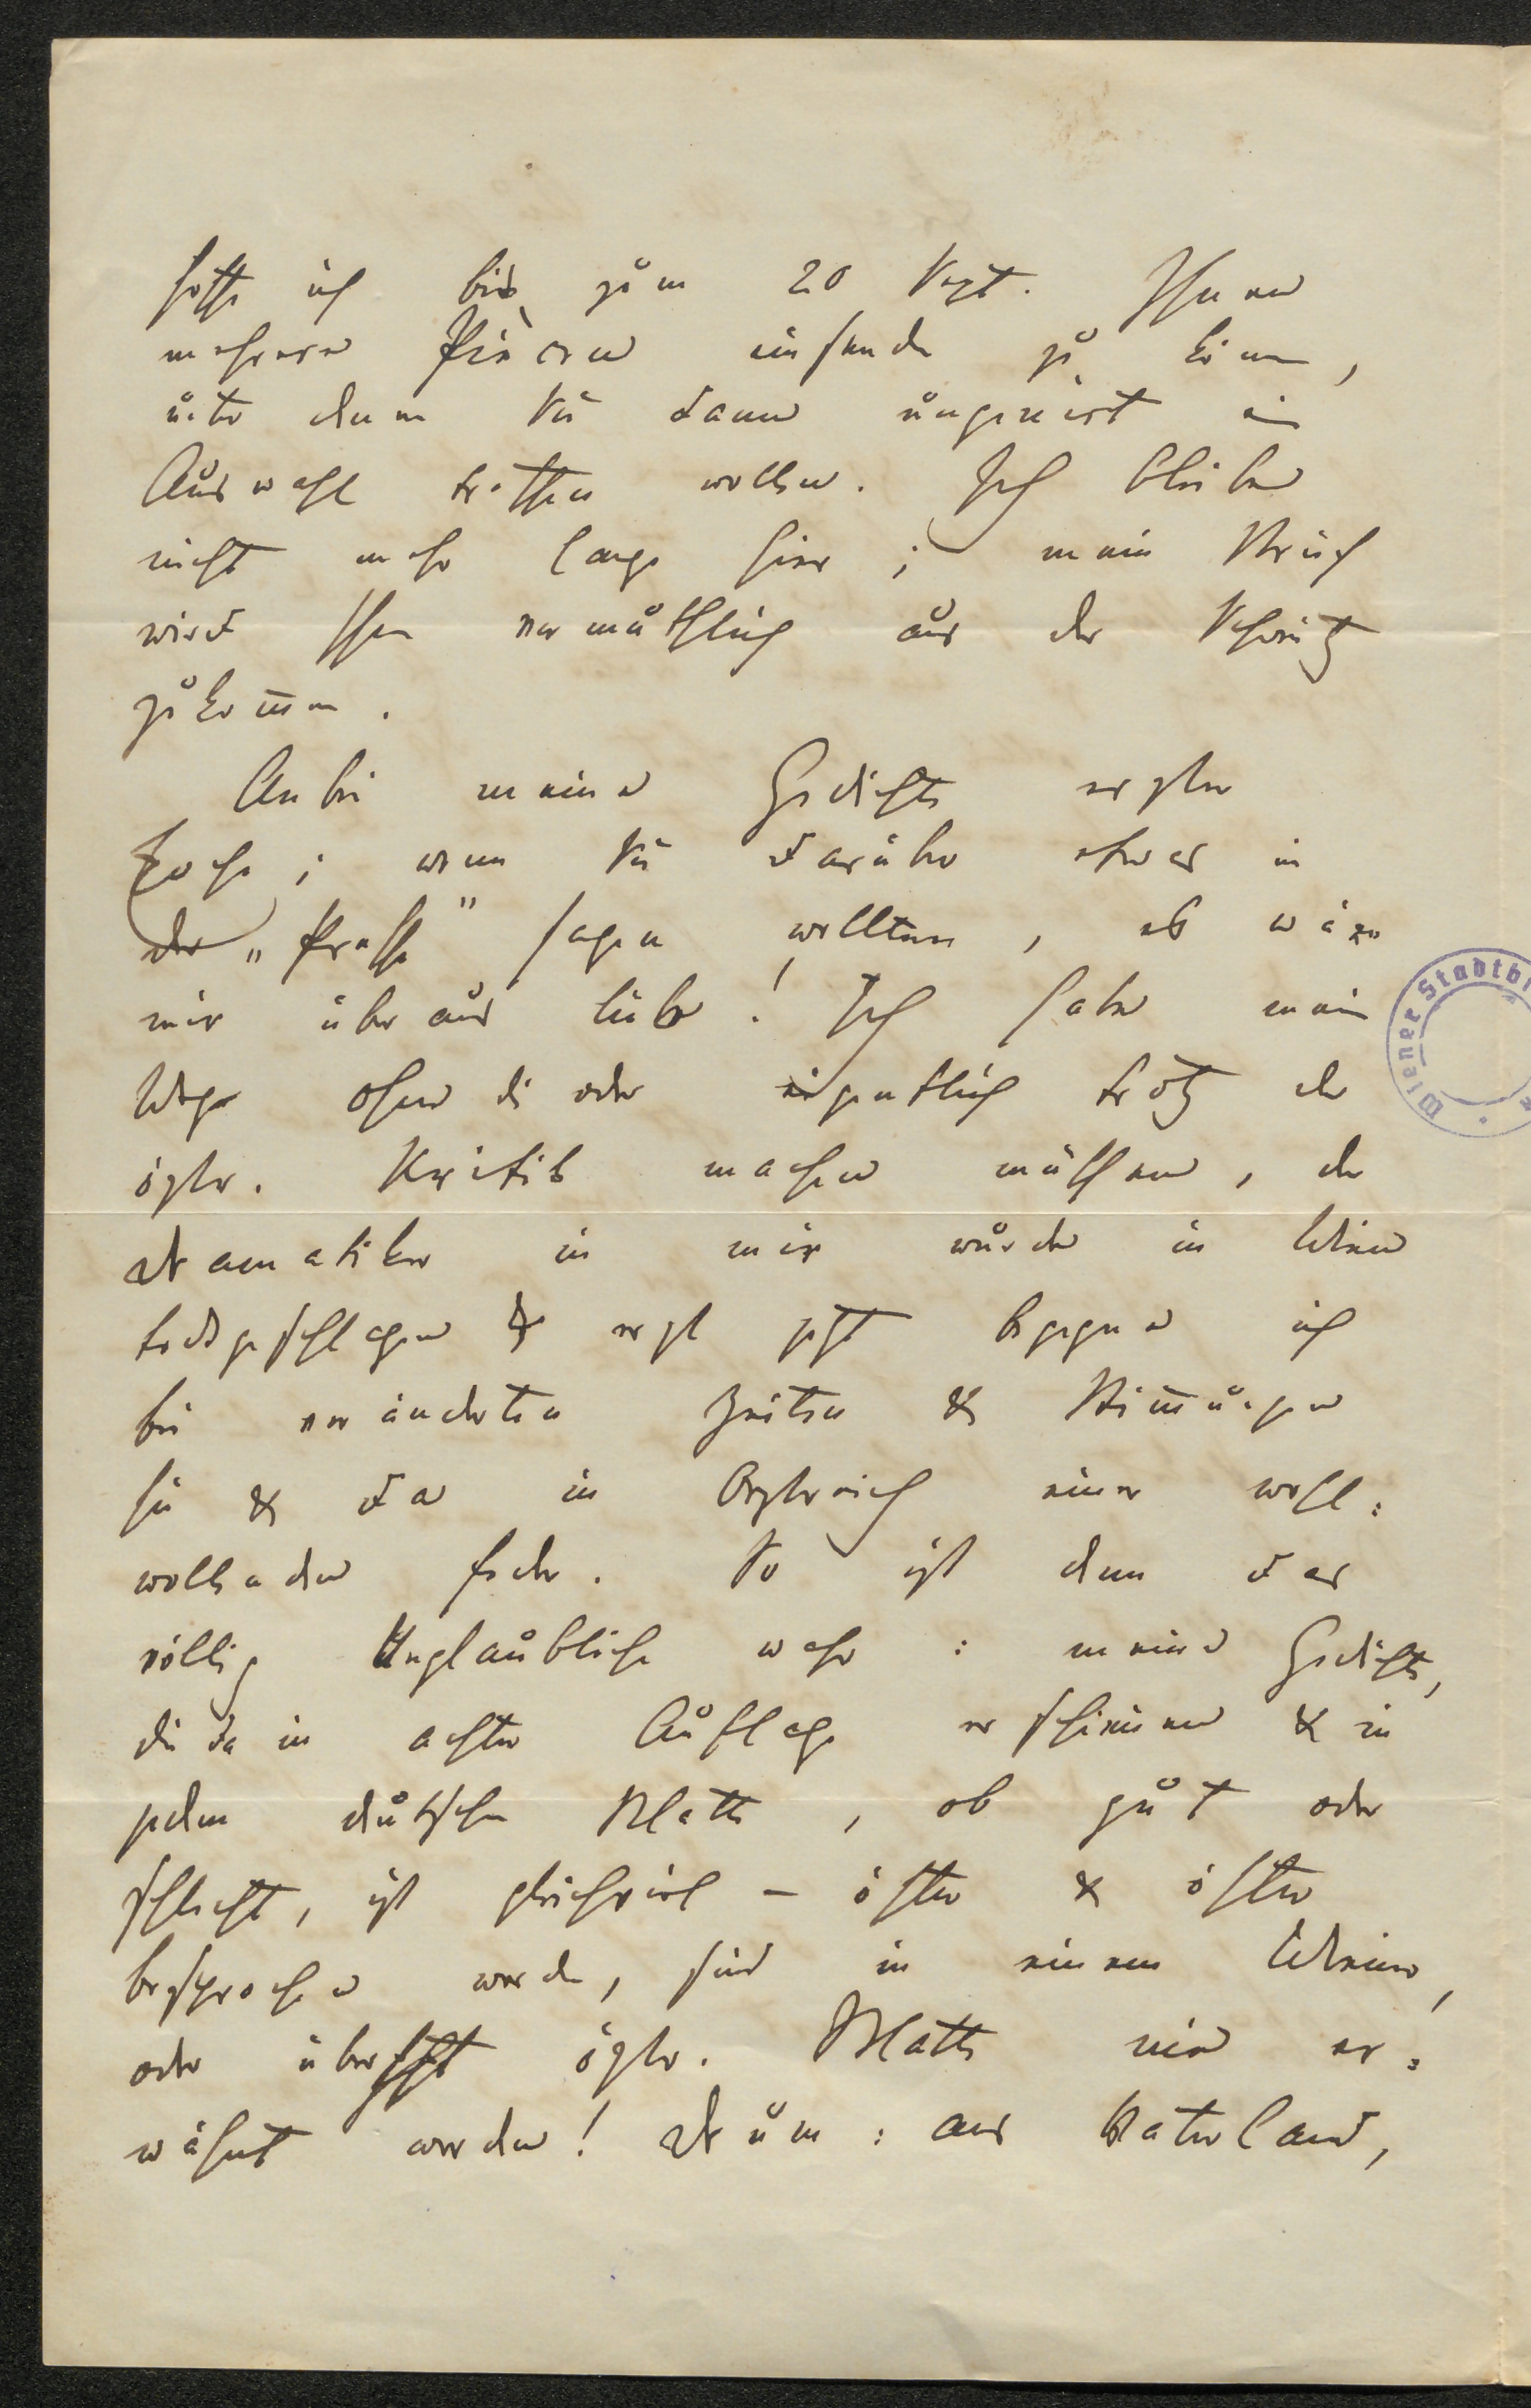 hoffe ich bis zum 20 Sept. Ihnen
mehrere Piècen einsenden zu können,
unter denen Sie dann ungenirt eine
Auswahl treffen wollen. Ich bleibe
nicht mehr lange hier; mein Brief
wird Ihnen vermuthlich aus der Schweiz
zukommen.
Anbei meine Gedichte erster
Epoche; wenn Sie darüber etwas in
der „Presse" sagen wollten, es wäre
mir überaus lieb! Ich habe meine
Wege ohne die oder eigentlich trotz der
östr. Kritik machen müssen, der
Dramatiker in mir wurde in Wien
todtgeschlagen & erst jetzt begegne ich
bei veränderten Zeiten & Stimmungen
hie & da in Oesterreich einer wohl=
wollenden Feder. So ist denn das
völlig Unglaubliche wahr: meine Gedichte,
die da in achter Auflage erscheinen & in
jedem deutschen Blatte, ob gut oder
schlecht, ist gleichviel – öfter & öfter
besprochen werden, sind in einem Wiener,
oder überhpt östr. Blatte nie er=
wähnt worden! Drum: ans Vaterland,
Wiener Stadtbi